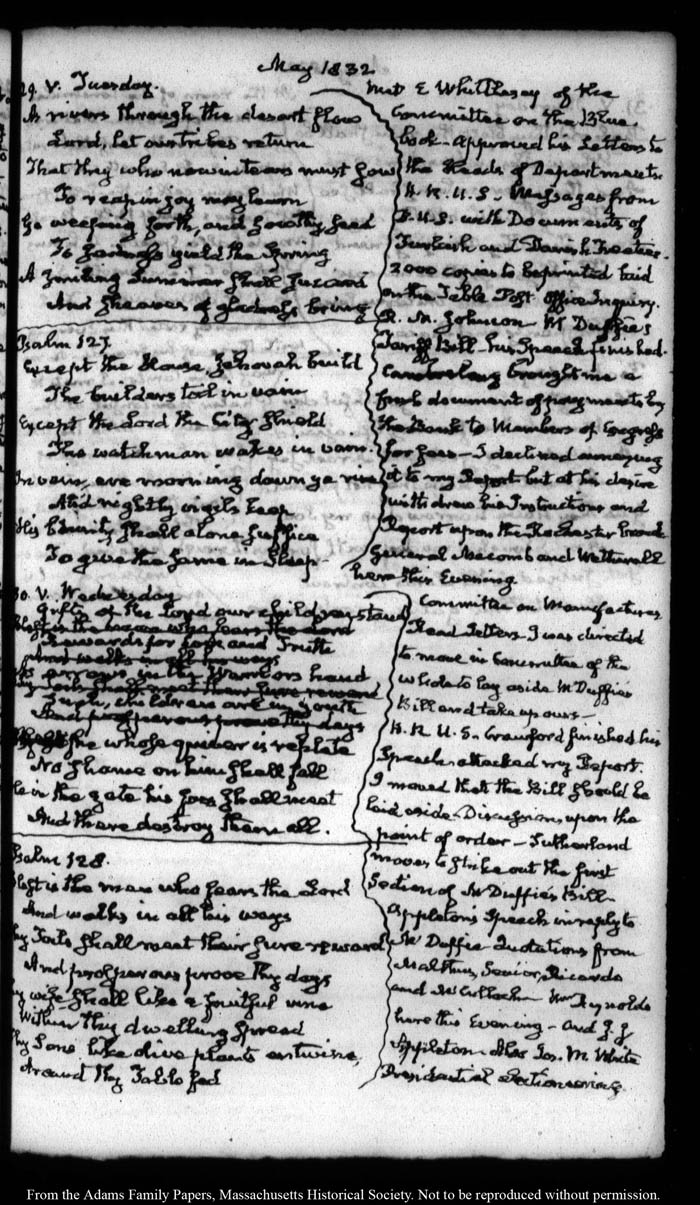 May 1832
29. V. Tuesday.
As rivers through the desert flow
Lord, let our tribes return
That they who now in tears must sow
To reap in joy may learn
Go weeping forth, and goodly seed
To gladness yield the Spring
A smiling Summer shall succeed
And sheaves of gladness bring
Psalm 127.
Except the House, Jehovah build
The builders toil in vain
Except the Lord the City shield
The watchman wakes in vain.
In vain, ere morning dawn ye rise
And nightly vigils keep
His bounty shall alone suffice
To give the same in Sleep.
30. V. Wednesday
Gifts of the Lord our children stand
Blest is the man who fears the Lord
Rewards for love and Truth
And walks in all his ways
As arrows in the Warriors hand
Thy toils shall meet their sure reward
Such, children are in youth
And prosperous prove thy days
Blest he whose quiver is replete
No shame on him shall fall
He in the gate his foes shall meet
And there destroy them all.
Psalm 128.
Blest is the man who fears the Lord
And walks in all his ways
Thy Toils shall meet their sure reward
And prosperous prove thy days
Thy wife shall like a fruitful vine
Within thy dwelling spread
Thy Sons like olive plants entwine,
Around thy Table fed
Met E Whittlesey of the
Committee on the Blue
book. approved his Letters to
the Heads of Departments.
H. R. U.S. Messages from
P.U.S. with Documents of
Turkish and Danish Treaties.
2000 copies to be printed laid
on the Table Post Office Inquiry.
R. M. Johnson M'Duffie's
Tariff Bill—his Speech finished.
Cambreleng brought me a
fresh document of payments by
the Bank to Members of Congress
for fees—I declined annexing
it to my Report but at his desire
withdrew his Instructions and
Report upon the Rochester
General Macomb and Wetherell
here this Evening
Committee on Manufactures
Read Letters I was directed
to move in Committee of the
whole to lay aside M'Duffie's
Bill and take up ours—
H. R. U.S. Crawford finished his
Speech attacked my Report.
I moved that the Bill should be
laid aside. Discussion, upon the
point of order—Sutherland
moves to strike out the first
Section of M'Duffie's Bill.
Appleton's Speech in reply to
M'Duffie Quotations from
Malthus, Senior, Ricardo
and M'Culloch Wm Reynolds
here this Evening—and J. J
Appleton. Also Jos. M. White
Presidential Electioneering.
From the Adams Family Papers, Massachusetts Historical Society. Not to be reproduced without permission.